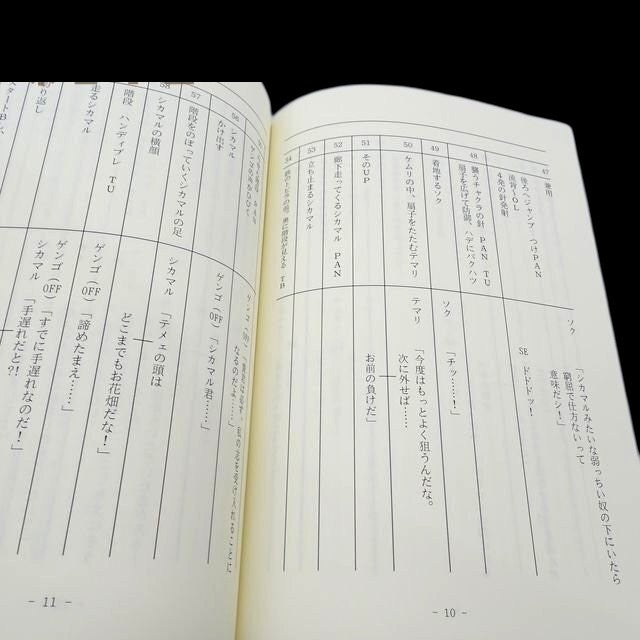 47
兼用
ソク
「シカマルみたいな弱っちい奴の下にいたら
窮屈で仕方ないって
意味だシ！」
後ろへジャンプ・つけPAN
4発の針発射
SE ドドドッ！
48
襲うチャクラの針 PAN TU
扇子を広げて防御、ハデにバクハツ
49
着地するソク
ソク
「チッ……！」
50
ケムリの中、扇子をたたむテマリ
テマリ
「今度はもっとよく狙うんだな。
次に外せば……
51
そのUP
お前の負けだ」
52
廊下走ってくるシカマル PAN
53
立ち止まるシカマル
54
奥に階段が見える TB
- 10 -
ゲンゴ (OFF)
私の志を受け入れることに
なるのだよ……」
56
シカマル
かけ出す
ゲンゴ (OFF)
「シカマル君……」
57
階段をのぼっていくシカマルの足
シカマル
「テメェの頭は
58
シカマルの横顔
どこまでもお花畑だな！」
階段 ハンディブレ TU
ゲンゴ (OFF)
「諦めたまえ……」
走るシカマル
ゲンゴ (OFF)
「すでに手遅れなのだ！」
シカマル
「手遅れだと?!
り返し
- 11 -